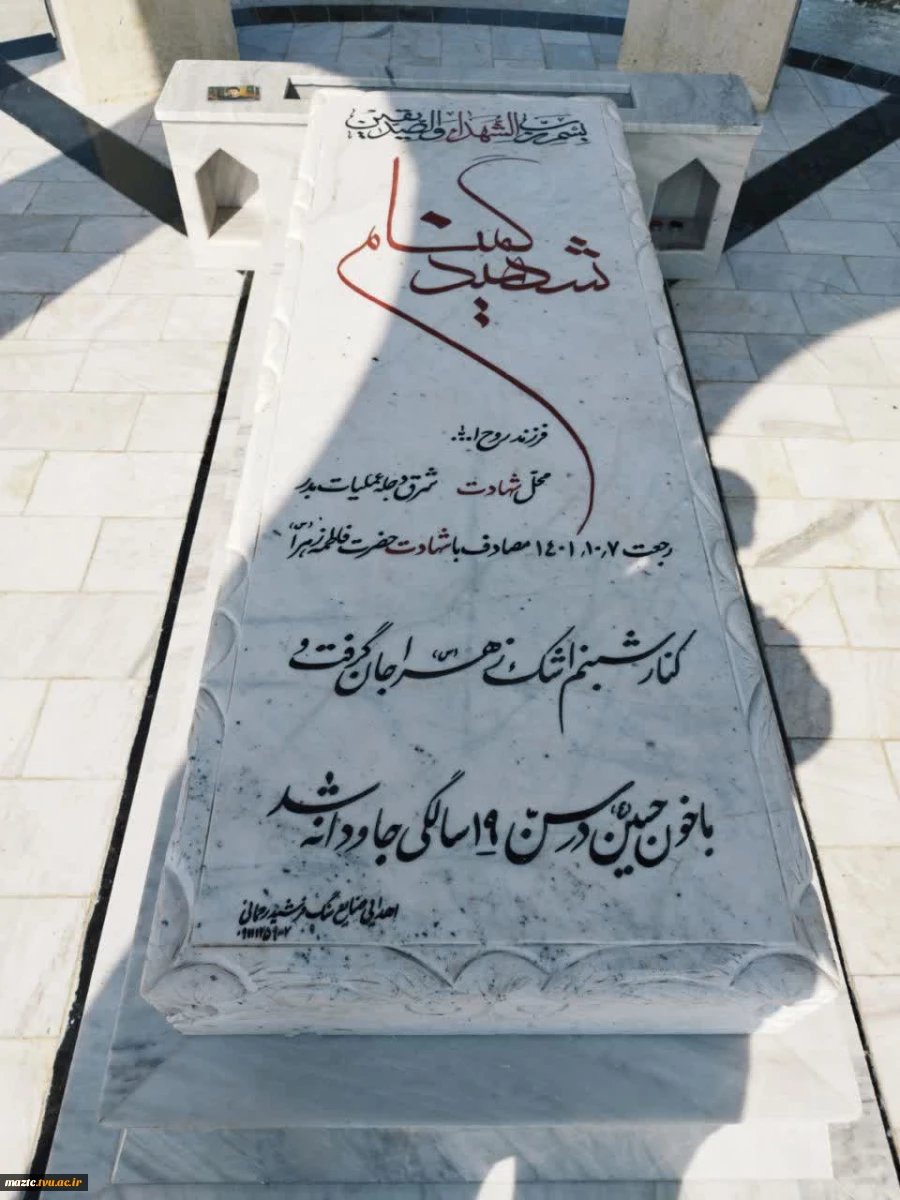 بسم رب الشهداء والصدیقین
شهید گمنام
فرزند روح ا...
محل شهادت شرق دجله عملیات بدر
رجعت ۱۴۰۱،۱۰،۷ مصادف با شهادت حضرت فاطمه زهرا (س)
کنار شبنم اشک زهرا (س) جان گرفت و
با خون حسین (ع) در سن ۱۹ سالگی جاودانه شد
اهدایی صنایع سنگ فرشید رحمانی
maztc.tvu.ac.ir